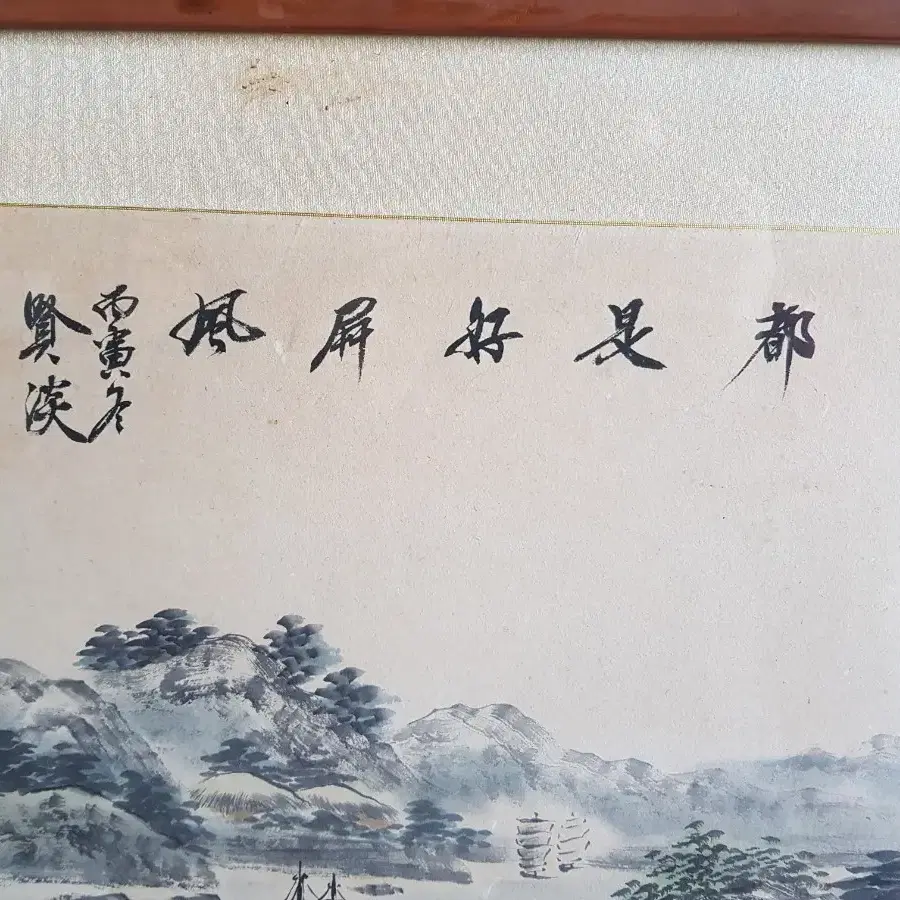 都是好屏風
丙寅冬
賢淡